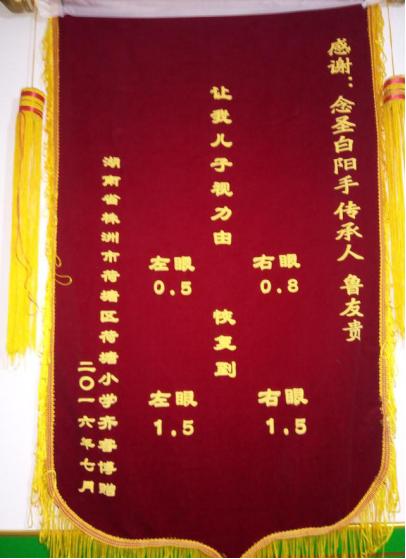 感谢：念圣白阳手传承人 鲁友贵
让我儿子视力由
右眼 0.8
左眼 0.5
恢复到
右眼 1.5
左眼 1.5
湖南省株洲市荷塘区荷塘小学齐睿博赠
二〇一六年七月